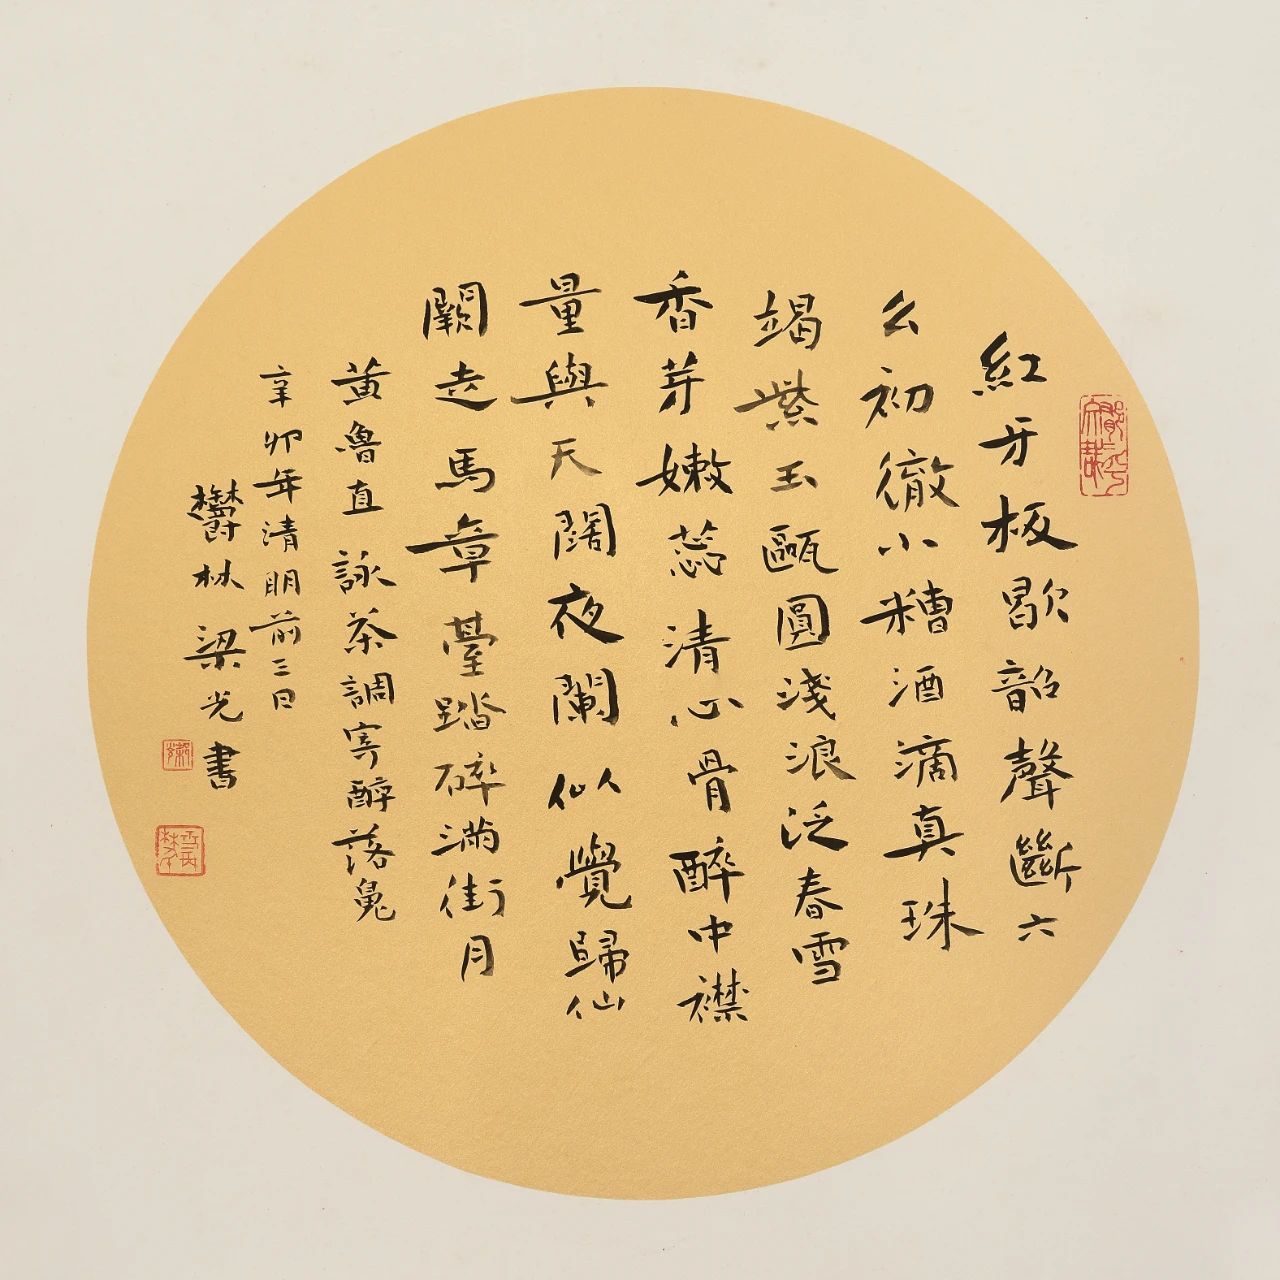 紅牙板歇韶聲斷六
么初徹小糟酒滴真珠
竭紫玉甌圓淺浪泛春雪
香芽嫩蕊清心骨醉中襟
量與天闊夜闌似覺歸仙
闕走馬章臺踏碎滿街月
黃魯直詠茶調寄醉落魄
辛卯年清明前三日
欎林梁光書